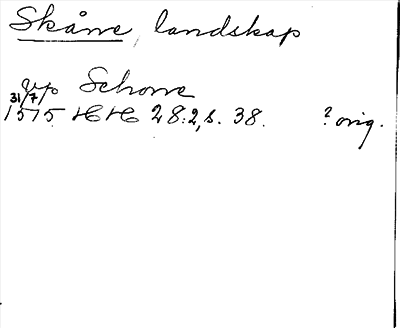 Skåne, landskap
vp Schone
31/7
1575 HH 28:2, s. 38. ? orig.